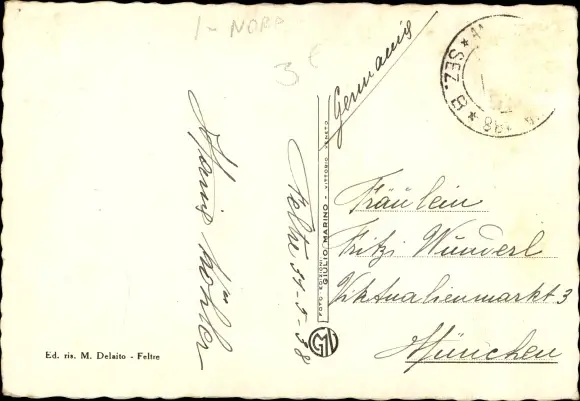 1-NORD
3€
Germania
* SEZ. B *
Feltre 31-5-38
FOTO EDIZIONI GIULIO MARINO - VITTORIO VENETO
GM
Fräulein
Fritzi Wunderl
Viktualienmarkt 3
München
Ed. ris. M. Delaito - Feltre